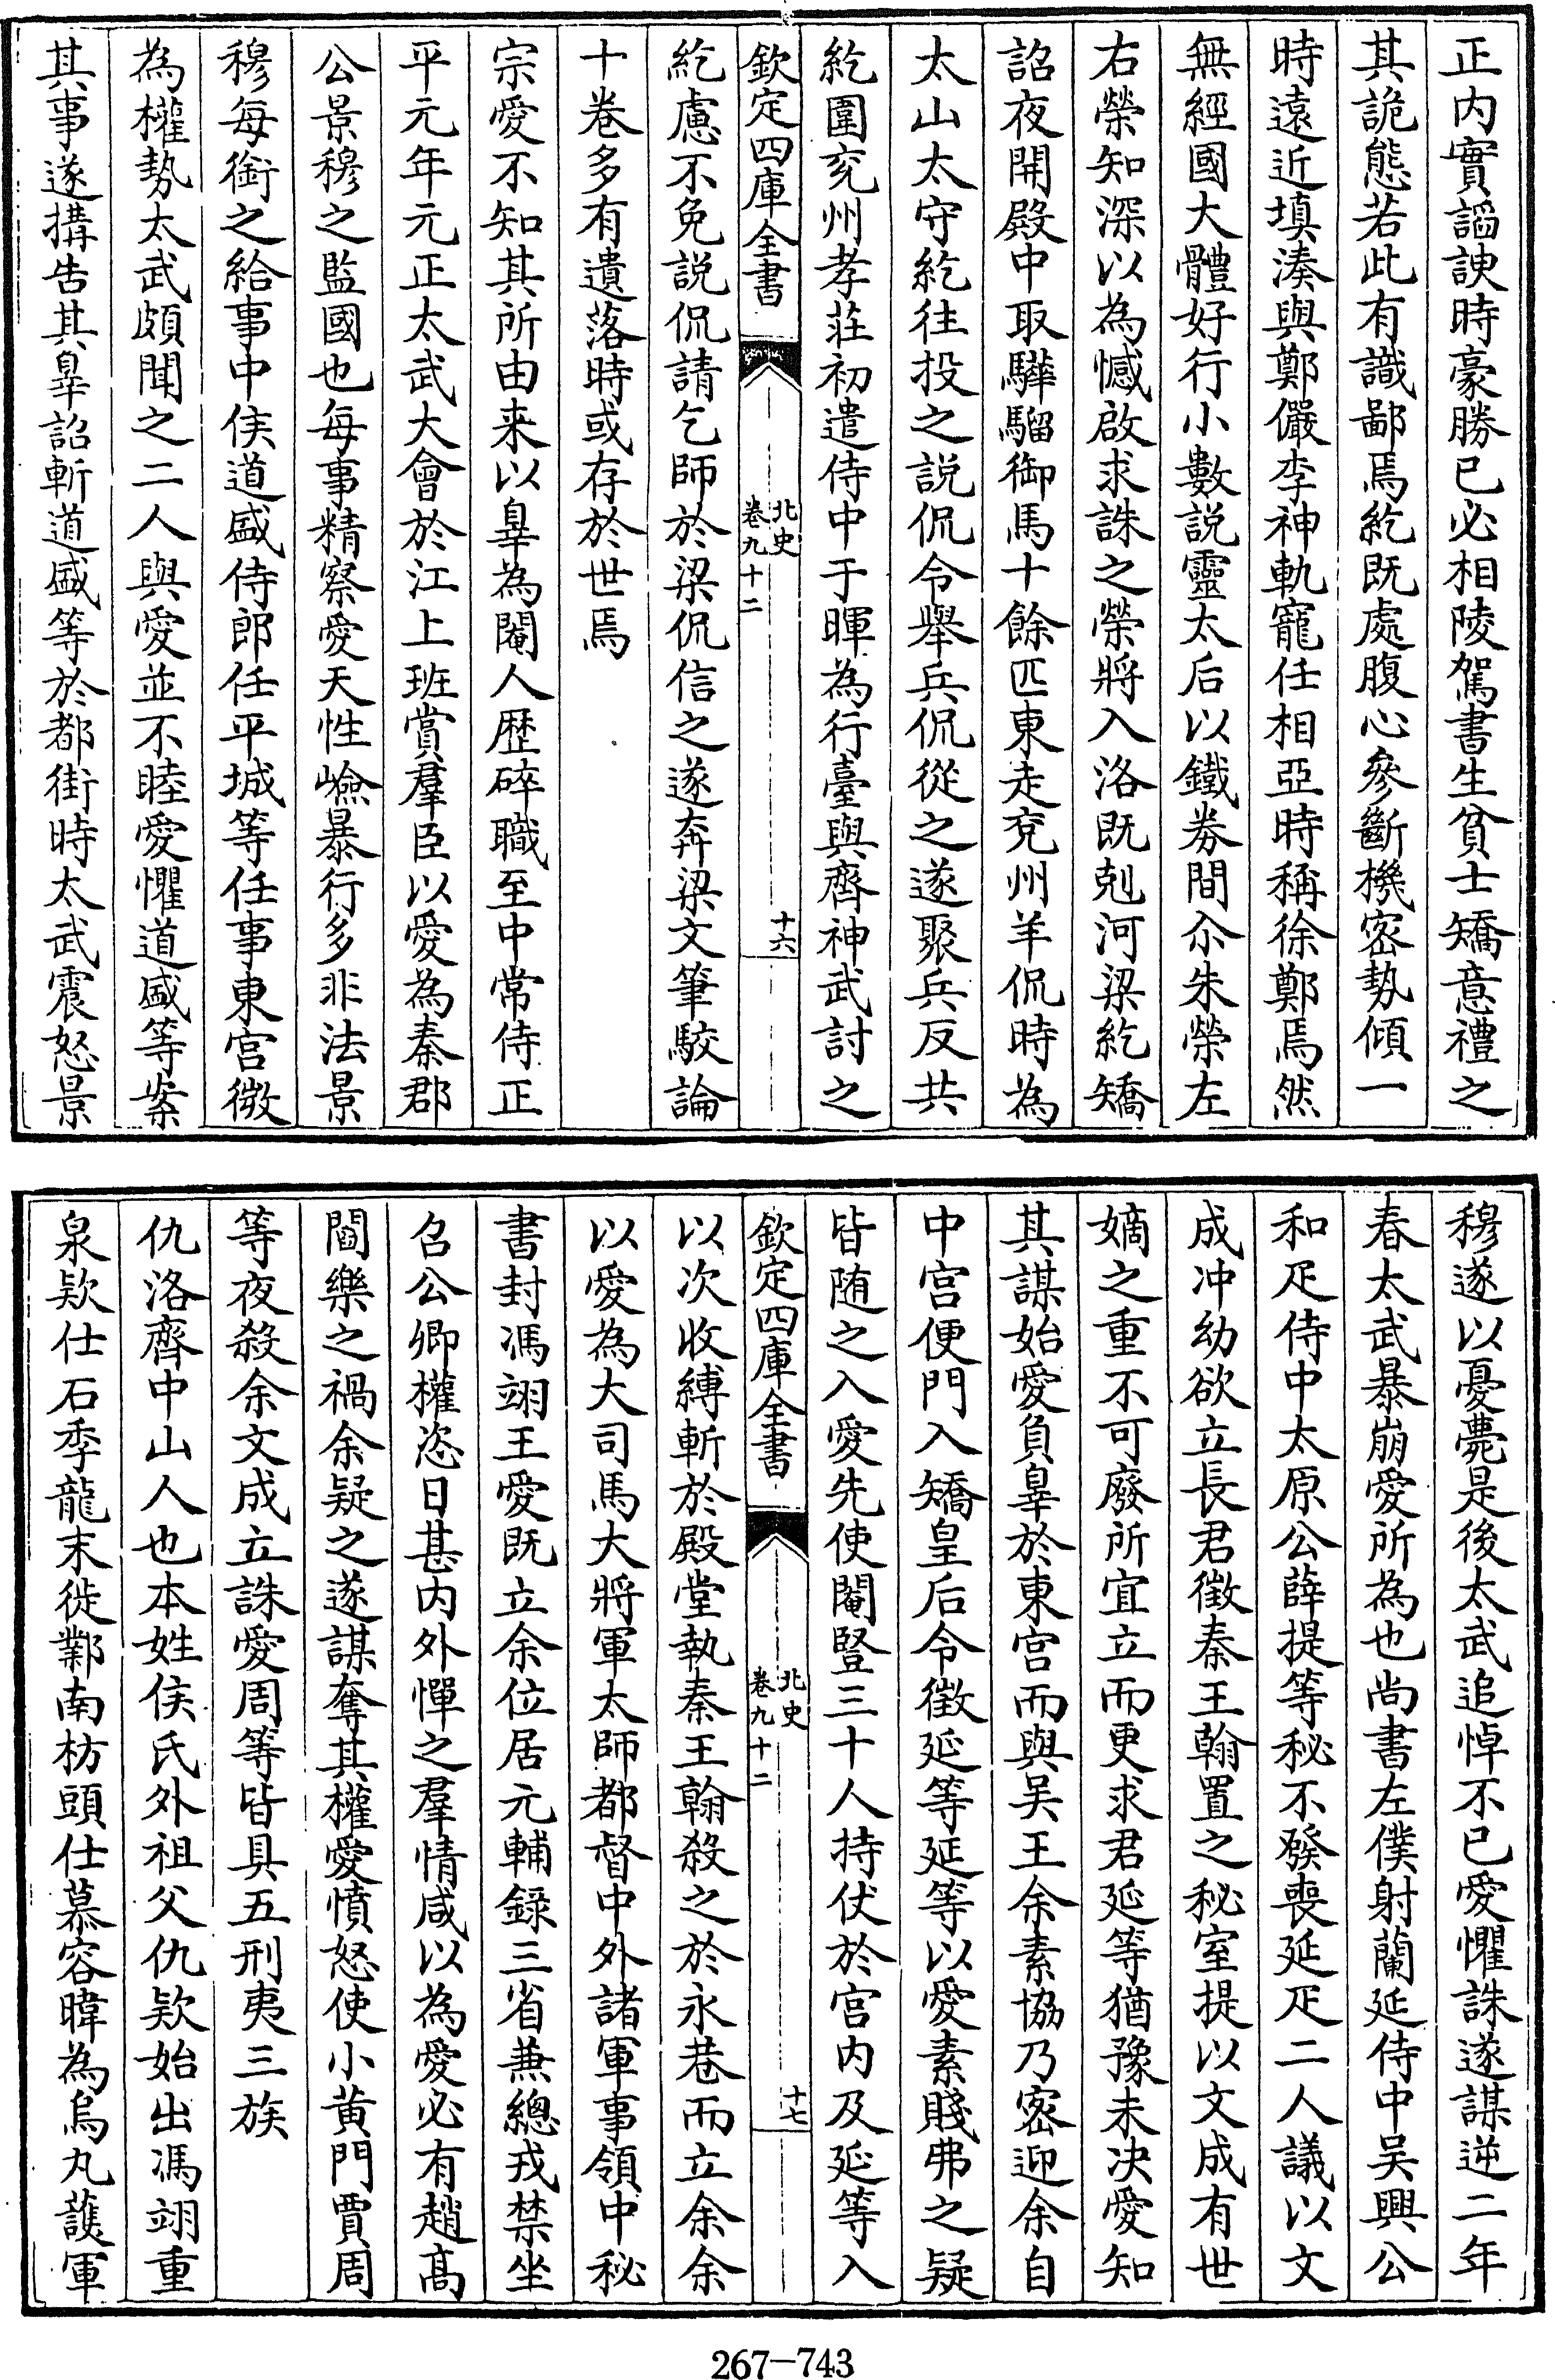 正内實謟諛時豪勝已必相陵駕書生貧士矯意禮之
其詭態若此有識鄙焉紇既處腹心參斷機密勢傾一
時遠近填湊與鄭儼李神軌寵任相亞時稱徐鄭焉然
無經國大體好行小數説靈太后以鐵券間尒朱榮左
右榮知深以為憾啟求誅之榮將入洛既剋河梁紇矯
詔夜開殿中取驊騮御馬十餘匹東走兗州羊侃時為
太山太守紇往投之説侃令舉兵侃從之遂聚兵反共
紇圍兗州孝莊初遣侍中于暉為行臺與齊神武討之
欽定四庫全書
北史
卷九十二
十六
紇慮不免説侃請乞師於梁侃信之遂奔梁文筆駮論
十卷多有遺落時或存於世焉
宗愛不知其所由来以辠為閹人歴碎職至中常侍正
平元年元正太武大會於江上班賞羣臣以愛為秦郡
公景穆之監國也每事精察愛天性嶮暴行多非法景
穆每銜之給事中侯道盛侍郎任平城等任事東宫微
為權勢太武頗聞之二人與愛並不睦愛懼道盛等案
其事遂搆告其辠詔斬道盛等於都街時太武震怒景
穆遂以憂薨是後太武追悼不已愛懼誅遂謀逆二年
春太武暴崩愛所為也尚書左僕射蘭延侍中吴興公
和疋侍中太原公薛提等秘不發喪延疋二人議以文
成冲幼欲立長君徵秦王翰置之秘室提以文成有世
嫡之重不可廢所宜立而更求君延等猶豫未决愛知
其謀始愛負辠於東宫而與吴王余素協乃密迎余自
中宫便門入矯皇后令徵延等延等以愛素賤弗之疑
皆随之入愛先使閹豎三十人持仗於宫内及延等入
欽定四庫全書
北史
卷九十二
十七
以次收縛斬於殿堂執秦王翰殺之於永巷而立余余
以愛為大司馬大將軍太師都督中外諸軍事領中秘
書封馮翊王愛既立余位居元輔録三省兼總戎禁坐
召公卿權恣日甚内外憚之羣情咸以為愛必有趙髙
閻樂之禍余疑之遂謀奪其權愛憤怒使小黄門賈周
等夜殺余文成立誅愛周等皆具五刑夷三族
仇洛齊中山人也本姓侯氏外祖父仇欵始出馮翊重
泉欵仕石季龍末徙鄴南枋頭仕慕容暐為烏丸護軍
267-743